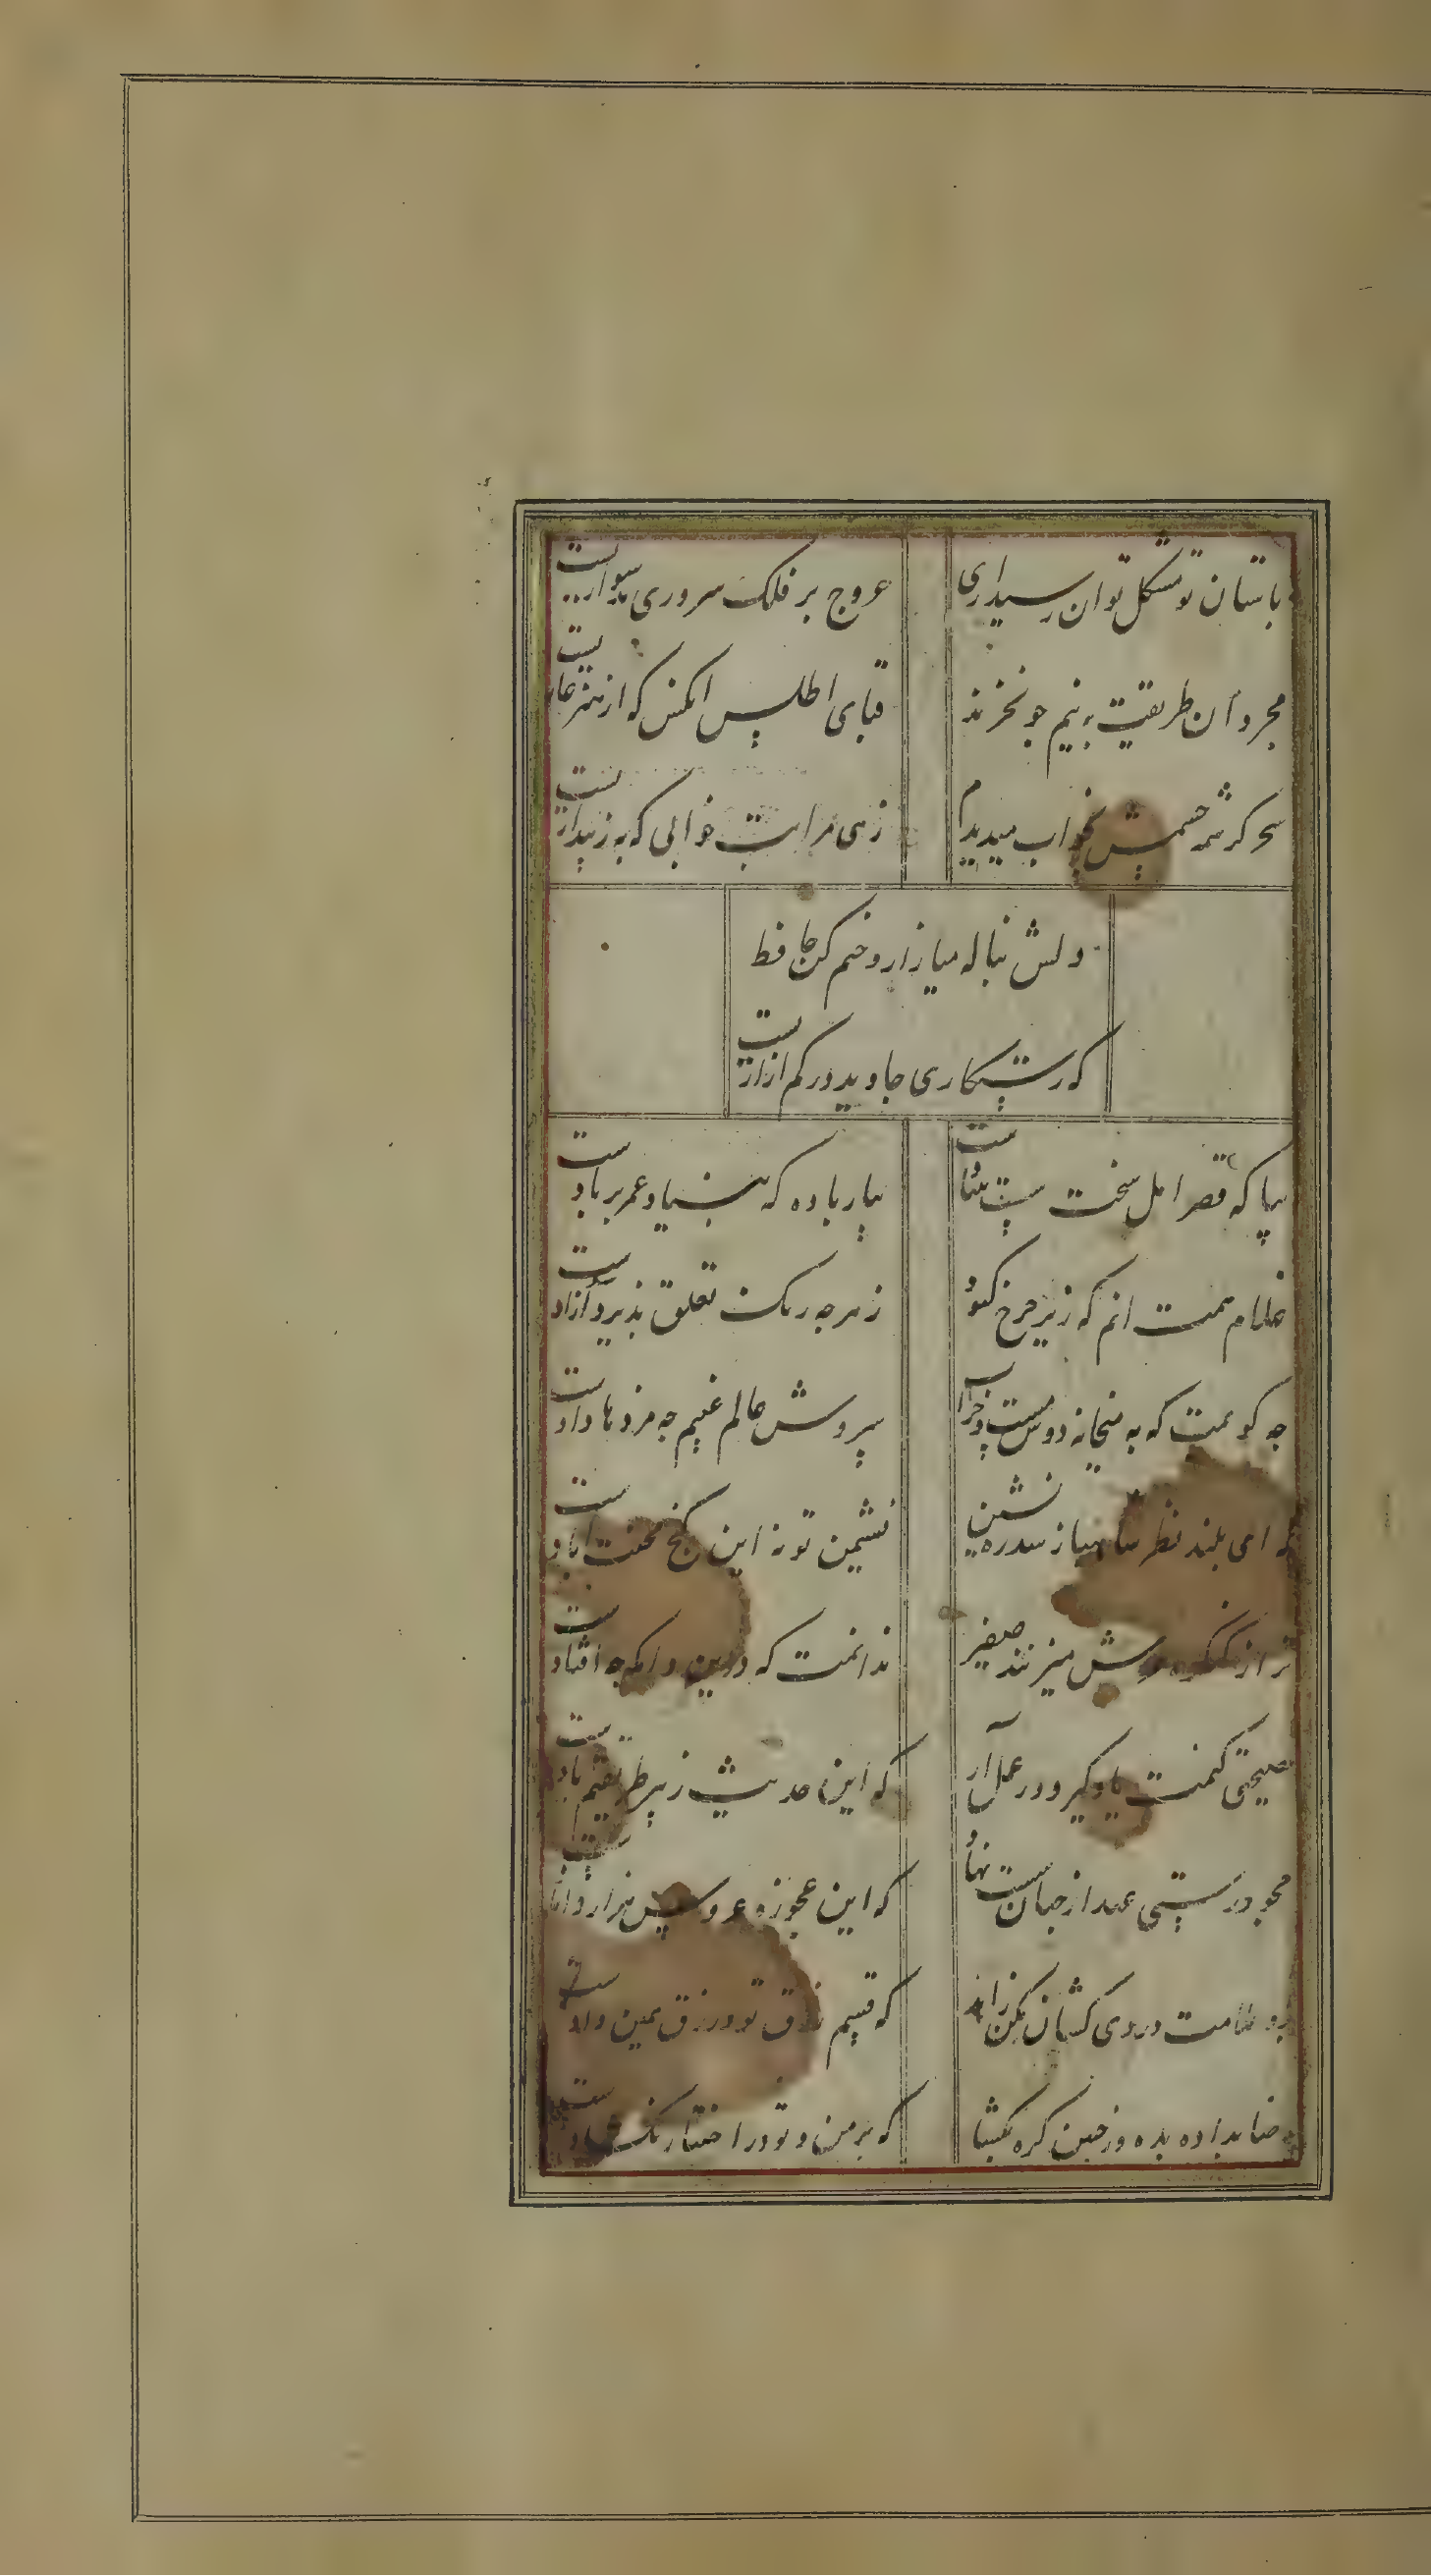 باستان تو مشکل توان رسید اری
عروج بر فلک سروری بدشواریست
مجردان طریقت به نیم جو نخرند
قبای اطلس انکس که از هنر عاریست
سحر کرشمه چشمش بخواب میدیدم
زهی مراتب خوابی که به ز بیداریست
دلش بناله میازار و ختم کن حافظ
که رستکاری جاوید در کم ازاریست
بیا که قصر امل سخت سست بنیادست
بیار باده که بنیاد عمر بر بادست
غلام همت انم که زیر چرخ کبود
ز هرچه رنک تعلق پذیرد آزادست
چه کویمت که به میخانه دوش مست و خراب
سروش عالم غیبم چه مژدها دادست
که ای بلند نظر شاهباز سدره نشین
نشیمن تو نه این کنج محنت ابادست
ترا ز کنکره عرش میزنند صفیر
ندانمت که درین دامکه چه افتادست
نصیحتی کنمت یاد کیر و در عمل آر
که این حدیث ز پیر طریقتم یادست
مجو درستی عهد از جهان سست نهاد
که این عجوزه عروس هزار دامادست
برو ملامت دردی کشان مکن زاهد
که قسیم رزاق تو در رزق همین دادست
رضا بداده بده وز جبین کره بکشا
که بر من و تو در اختیار نکشادست